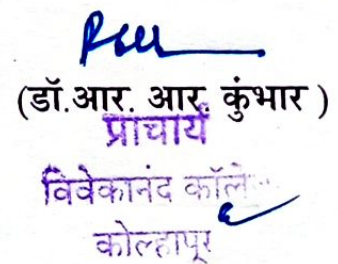 (डॉ.आर. आर. कुंभार )
प्राचार्य
विवेकानंद कॉले
कोल्हापूर